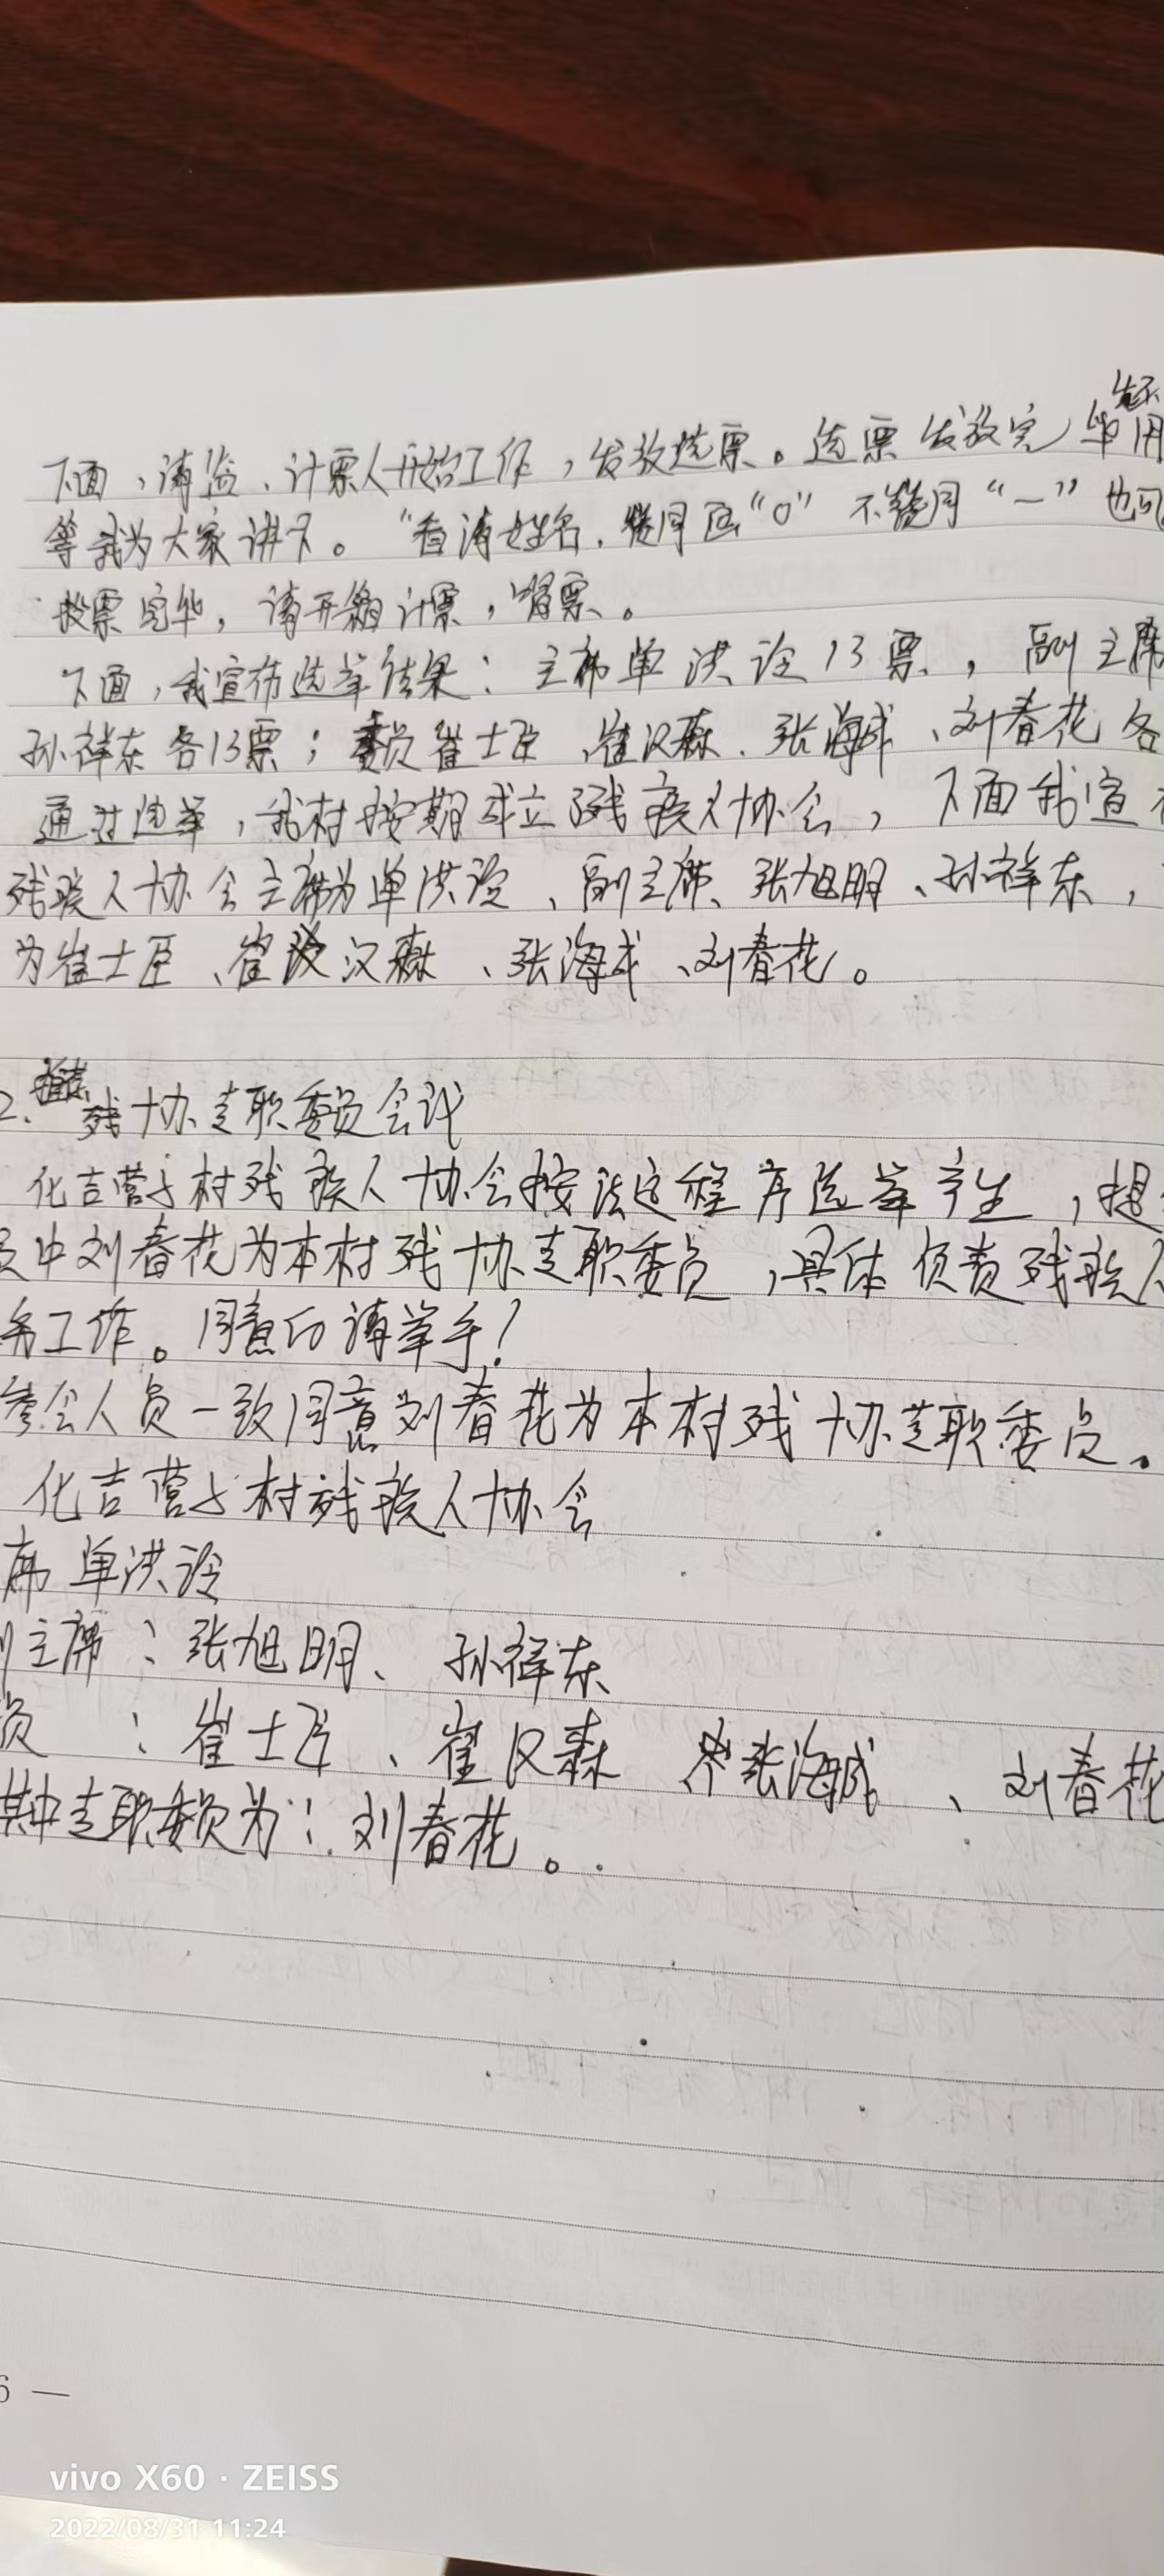 先不
下面，请监、计票人开始工作，发放选票。选票发放完毕用
等我为大家讲下。“看清姓名，赞同画“O”不赞同“一”也可
投票完毕，请开箱计票，唱票。
下面，我宣布选举结果：主席单洪玲13票，副主席
孙祥东各13票；委员崔士臣、崔汉森、张海成、刘春花各
通过选举，我村按期成立残疾人协会，下面我宣布
残疾人协会主席为单洪玲、副主席、张旭明、孙祥东，
为崔士臣、崔汉森、张海成、刘春花。
2. 残协专职委员会议
化吉营子村残疾人协会按法定程序选举产生，提
员中刘春花为本村残协专职委员，具体负责残疾人
务工作。同意的请举手！
参会人员一致同意刘春花为本村残协专职委员。
化吉营子村残疾人协会
席 单洪玲
副主席：张旭明、孙祥东
员：崔士臣、崔汉森 张海成、刘春花
其中专职委员为：刘春花。
6 —
vivo X60 · ZEISS
2022/08/31 11:24